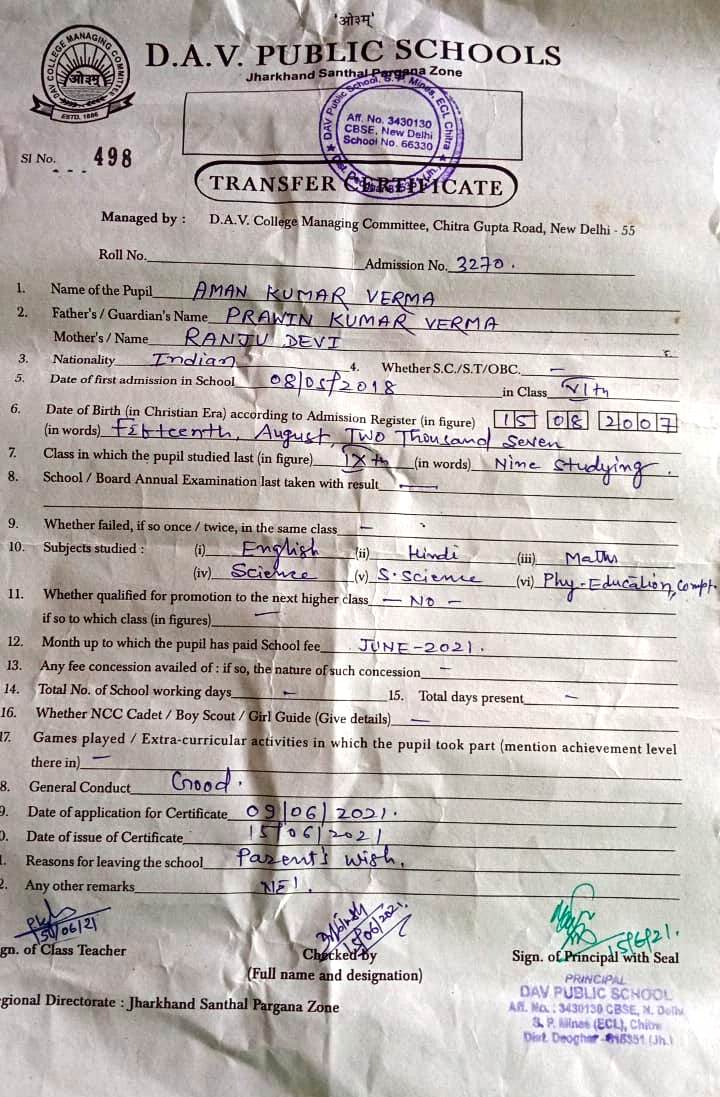 'ओ३म्'
D.A.V. PUBLIC SCHOOLS
Jharkhand Santhal Pargana Zone
DAV COLLEGE MANAGING COMMITTEE
ओ३म्
ESTD. 1886
DAV Public School, S. P. Mines, ECL Chitra
Aff. No. 3430130
CBSE, New Delhi
School No. 66330
Sl No. 498
TRANSFER CERTIFICATE
Managed by : D.A.V. College Managing Committee, Chitra Gupta Road, New Delhi - 55
Roll No. Admission No. 3270.
1. Name of the Pupil AMAN KUMAR VERMA
2. Father's / Guardian's Name PRAWIN KUMAR VERMA
Mother's / Name RANJU DEVI
3. Nationality Indian 4. Whether S.C./S.T/OBC. —
5. Date of first admission in School 08/05/2018 in Class VIth
6. Date of Birth (in Christian Era) according to Admission Register (in figure) 15 08 2007
(in words) Fifteenth, August, Two Thousand Seven
7. Class in which the pupil studied last (in figure) IXth (in words) Nine studying.
8. School / Board Annual Examination last taken with result —
9. Whether failed, if so once / twice, in the same class —
10. Subjects studied : (i) English (ii) Hindi (iii) Maths
(iv) Science (v) S. Science (vi) Phy-Education, Compt.
11. Whether qualified for promotion to the next higher class — NO —
if so to which class (in figures) —
12. Month up to which the pupil has paid School fee JUNE-2021.
13. Any fee concession availed of : if so, the nature of such concession —
14. Total No. of School working days — 15. Total days present —
16. Whether NCC Cadet / Boy Scout / Girl Guide (Give details) —
17. Games played / Extra-curricular activities in which the pupil took part (mention achievement level
there in) —
8. General Conduct Good.
9. Date of application for Certificate 09/06/2021.
0. Date of issue of Certificate 15/06/2021
1. Reasons for leaving the school Parent's wish.
2. Any other remarks NIL.
15/06/21 15/06/2021. 15/6/21.
gn. of Class Teacher Checked By Sign. of Principal with Seal
(Full name and designation)
PRINCIPAL
DAV PUBLIC SCHOOL
Aff. No. : 3430130 CBSE, N. Delhi
S. P. Mines (ECL), Chitra
Distt. Deoghar - 815351 (Jh.)
egional Directorate : Jharkhand Santhal Pargana Zone